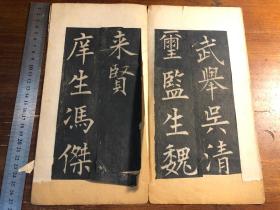 武舉吳清
璽監生魏
来賢
庠生馮傑